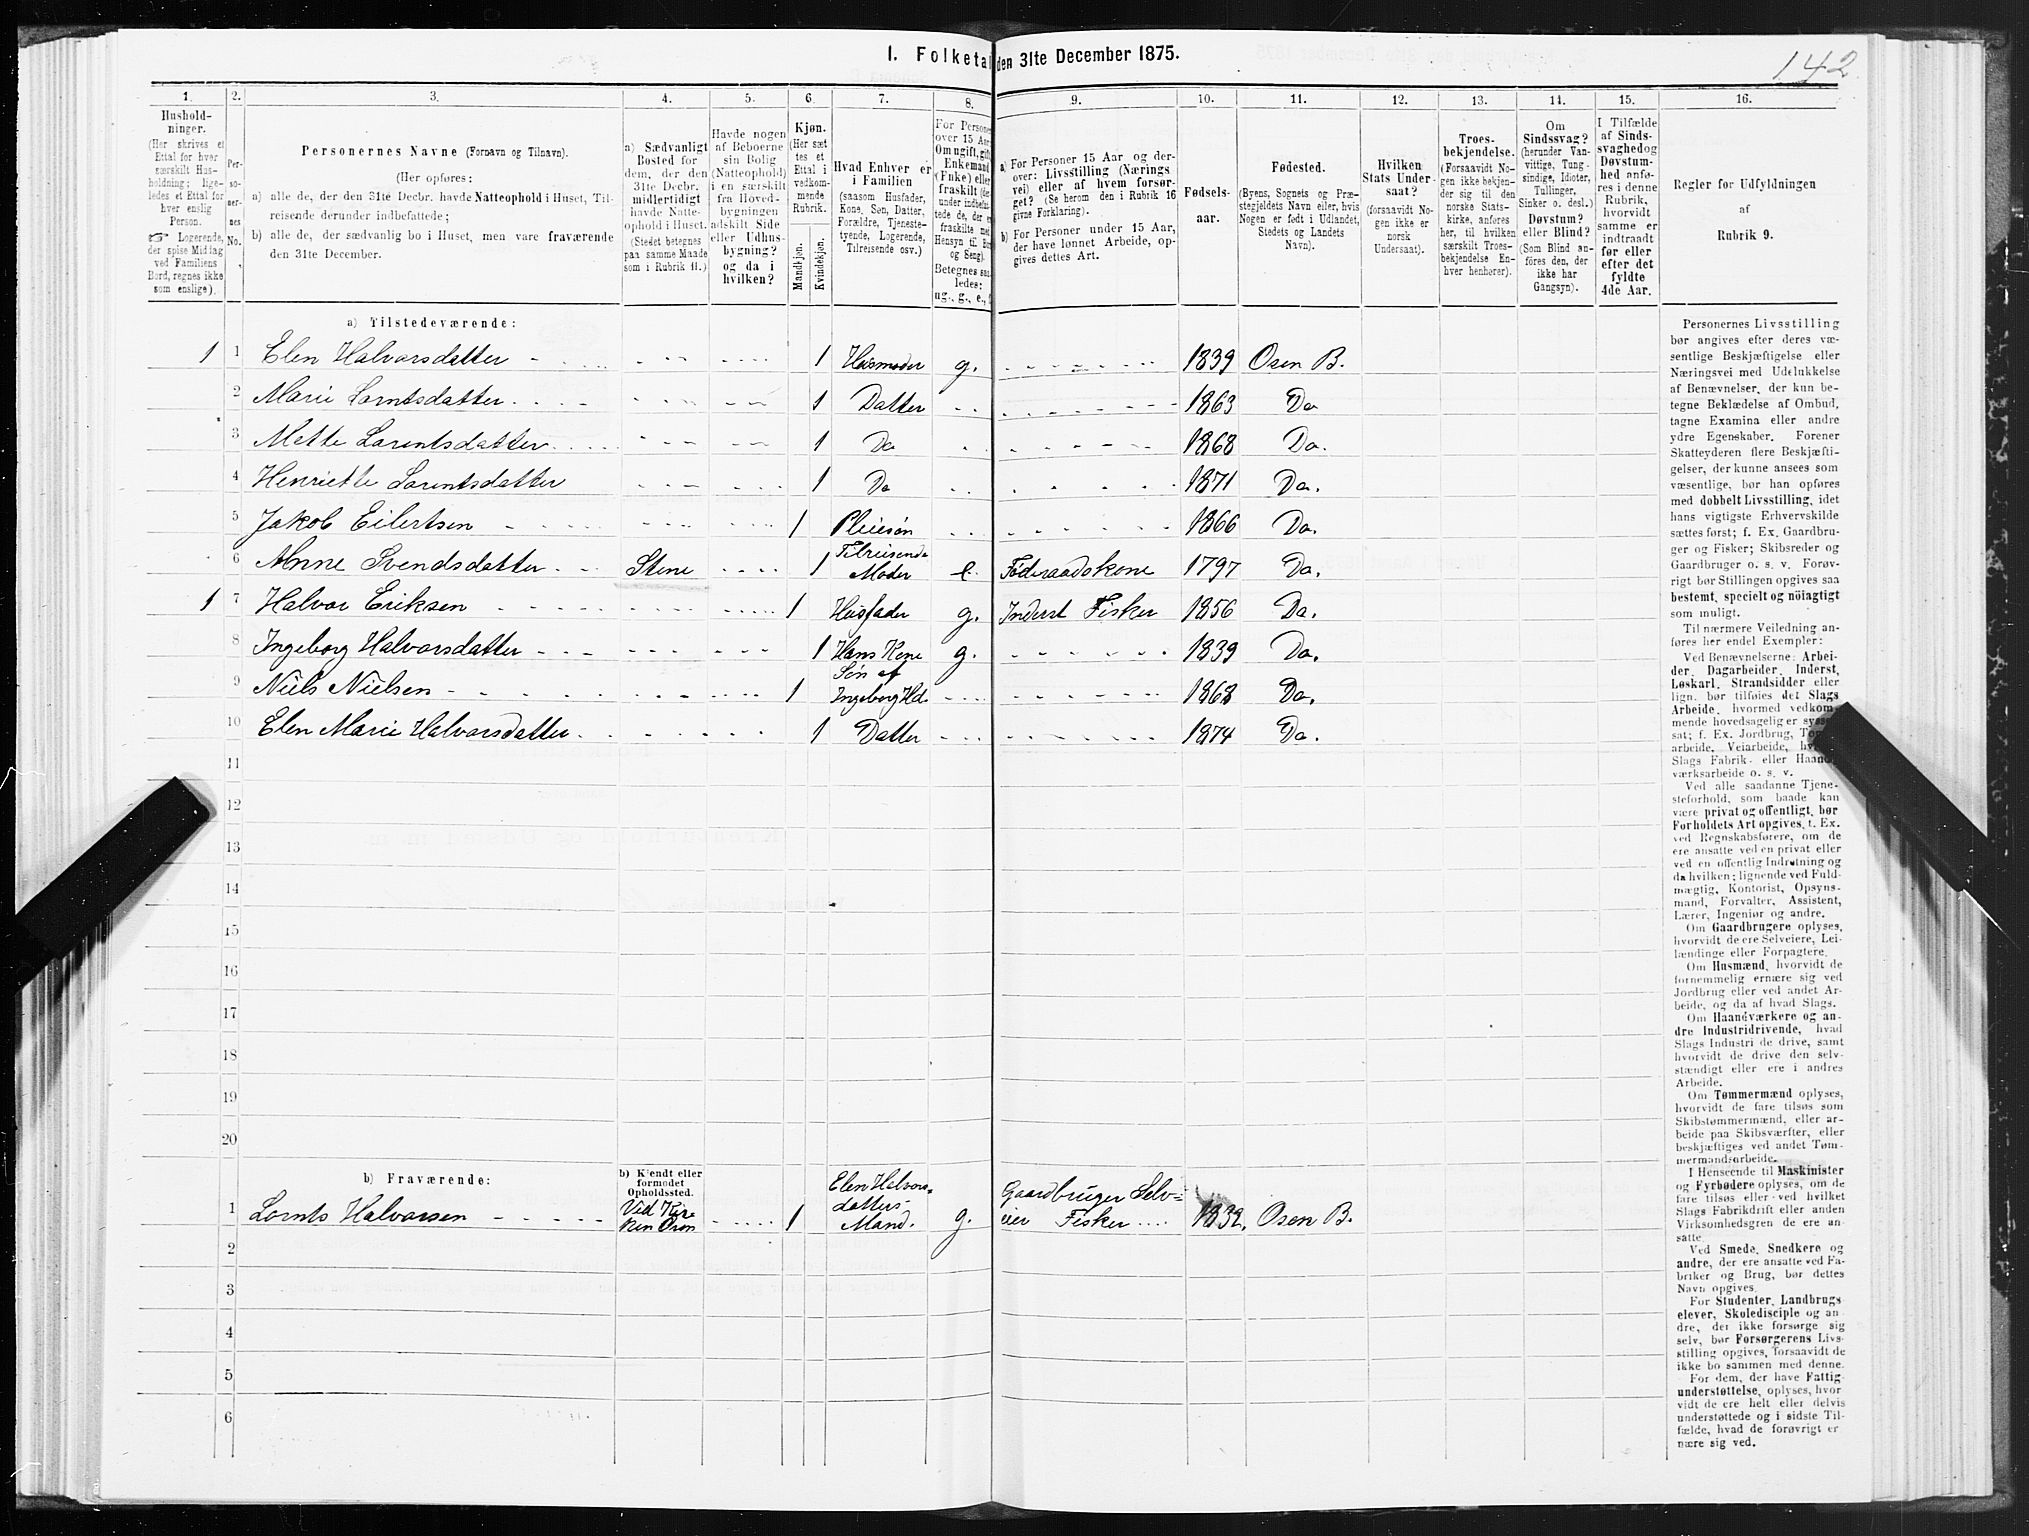 I. Folketal den 31te December 1875.
142
1. 2. 3. 4. 5. 6. 7. 8. 9. 10. 11. 12. 13. 14. 15. 16.
Hushold-
ninger.
(Her skrives et
Ettal for hver
særskilt Hus-
holdning; lige-
ledes et Ettal for
hver enslig
Person.
☞ Logerende,
der spise Middag
ved Familiens
Bord, regnes ikke
som enslige).
Per-
so-
ner-
nes
No.
Personernes Navne (Fornavn og Tilnavn).
(Her opføres:
a) alle de, der den 31te Decbr. havde Natteophold i Huset, Til-
reisende derunder indbefattede;
b) alle de, der sædvanlig bo i Huset, men vare fraværende
den 31te December.
a) Sædvanligt
Bosted for
dem, der den
31te Decbr.
midlertidigt
havde Natte-
ophold i Huset.
(Stedet betegnes
paa samme Maade
som i Rubrik 11.)
Havde nogen
af Beboerne
sin Bolig
(Natteophold)
i en særskilt
fra Hoved-
bygningen
adskilt Side
eller Udhus-
bygning?
og da i
hvilken?
Kjøn.
(Her sæt
tes et
Ettal i
vedkom-
mende
Rubrik.
Mandkjøn.
Kvindekjøn.
Hvad Enhver er
i Familien
(saasom Husfader,
Kone, Søn, Datter,
Forældre, Tjeneste-
tyende, Logerende,
Tilreisende osv.)
For Personer
over 15 Aar
Om ugift, gift,
Enkemand
(Enke) eller
fraskilt (der-
under indbefat-
tede de, der er
fraskilte med
Hensyn til Bord
og Seng).
Betegnes saa-
ledes:
ug., g., e.,
a) For Personer 15 Aar og der-
over: Livsstilling (Nærings
vei) eller af hvem forsør-
get? (Se herom den i Rubrik 16
givne Forklaring).
b) For Personer under 15 Aar,
der have lønnet Arbeide, op-
gives dettes Art.
Fødsels-
aar.
Fødested.
(Byens, Sognets og Præ-
stegjeldets Navn eller, hvis
Nogen er født i Udlandet,
Stedets og Landets
Navn).
Hvilken
Stats Under-
saat?
(forsaavidt No-
gen ikke er
norsk
Undersaat).
Troes-
bekjendelse.
(Forsaavidt No-
gen ikke bekjen-
der sig til den
norske Stats-
kirke, anføres
her, til hvilken
særskilt Troes-
bekjendelse En-
hver henhører).
Om
Sindssvag?
(herunder Van-
vittige, Tung-
sindige, Idioter,
Tullinger,
Sinker o. desl.)
Døvstum?
eller Blind?
(Som Blind an-
føres den, der
ikke har
Gangsyn).
I Tilfælde
af Sinds-
svaghed og
Døvstum-
hed anfø-
res i denne
Rubrik,
hvorvidt
samme er
indtraadt
før eller
efter det
fyldte
4de Aar.
Regler for Udfyldningen
af
Rubrik 9.
a) Tilstedeværende:
1 1 Elen Halvorsdatter 1 Husmoder g. 1839 Osen B.
2 Marie Lorntsdatter 1 Datter 1863 Do
3 Mette Lorentsdatter 1 Do 1868 Do.
4 Henriette Lorentsdatter 1 Do 1871 Do.
5 Jakob Eilertsen 1 Pleiesøn 1866 Do.
6 Anne Svendsdatter Stene 1 Tilreisende
Moder e. Føderaadskone 1797 Do.
1 7 Halvor Eriksen 1 Husfader g. Inderst Fisker 1856 Do.
8 Ingeborg Halvorsdatter 1 Hans Kone g. 1839 Do.
9 Niels Nielsen 1 Søn af
Ingeborg Hd. 1868 Do.
10 Elen Marie Halvorsdatter 1 Datter 1874 Do.
11
12
13
14
15
16
17
18
19
20
b) Fraværende:
b) Kjendt eller
formodet
Opholdssted.
1 Lornts Halvorsen Ved 1 Elen Halvors-
datters
Mand. g. Gaardbruger Selv-
eier Fisker 1832. Osen B.
2
3
4
5
6
Personernes Livsstilling
bør angives efter deres væ-
sentlige Beskjæftigelse eller
Næringsvei med Udelukkelse
af Benævnelser, der kun be-
tegne Beklædelse af Ombud,
tagne Examina eller andre
ydre Egenskaber. Forener
Skatteyderen flere Beskjæfti-
gelser, der kunne ansees som
væsentlige, bør han opføres
med dobbelt Livsstilling, idet
hans vigtigste Erhvervskilde
sættes først; f. Ex. Gaardbru-
ger og Fisker; Skibsreder og
Gaardbruger o. s. v. Forøv-
rigt bør Stillingen opgives saa
bestemt, specielt og nöiagtigt
som muligt.
Til nærmere Veiledning an-
føres her endel Exempler:
Ved Benævnelserne: Arbei-
der, Dagarbeider, Inderst,
Løskarl, Strandsidder eller
lign. bør tilføies det Slags
Arbeide, hvormed vedkom-
mende hovedsagelig er syssel-
sat; f. Ex. Jordbrug,
arbeide, Veiarbeide,
Slags Fabrik- eller Haand-
værksarbeide o. s. v.
Ved alle saadanne Tjene-
steforhold, som baade kan
være privat og offentligt, bør
Forholdets Art opgives, t. Ex.
ved Regnskabsførere, om de
ere ansatte ved en privat eller
ved en offentlig Indretning og
da hvilken; lignende ved Fuld-
mægtig, Kontorist, Opsyns-
mand, Forvalter, Assistent,
Lærer, Ingeniør og andre.
Om Gaardbrugere oplyses,
hvorvidt de ere Selveiere, Lei-
lændinge eller Forpagtere.
Om Husmænd, hvorvidt de
fornemmelig ernære sig ved
Jordbrug eller ved andet Ar-
beide, og da af hvad Slags.
Om Haandværkere og an-
dre Industridrivende, hvad
Slags Industri de drive, samt
hvorvidt de drive den selv-
stændigt eller ere i andres
Arbeide.
Om Tømmermænd oplyses,
hvorvidt de fare tilsøs som
Skibstømmermænd, eller ar-
beide paa Skibsværfter, eller
beskjæftiges ved andet Tøm-
mermandsarbeide.
I Henseende til Maskinister
og Fyrbødere oplyses, om de
fare tilsøs eller ved hvilket
Slags Fabrikdrift eller anden
Virksomhedsgren de ere an-
satte.
Ved Smede, Snedkere og
andre, der ere ansatte ved Fa-
briker og Brug, bør dettes
Navn opgives.
For Studenter, Landbrugs
elever, Skoledisciple og an-
dre, der ikke forsørge sig
selv, bør Forsørgerens Livs-
stilling opgives, forsaavidt de
ikke bo sammen med denne.
For dem, der have Fattig-
understøttelse, oplyses, hvor
vidt de ere helt eller delvis
understøttede og i sidste Til-
fælde, hvad de forøvrigt er
nære sig ved.